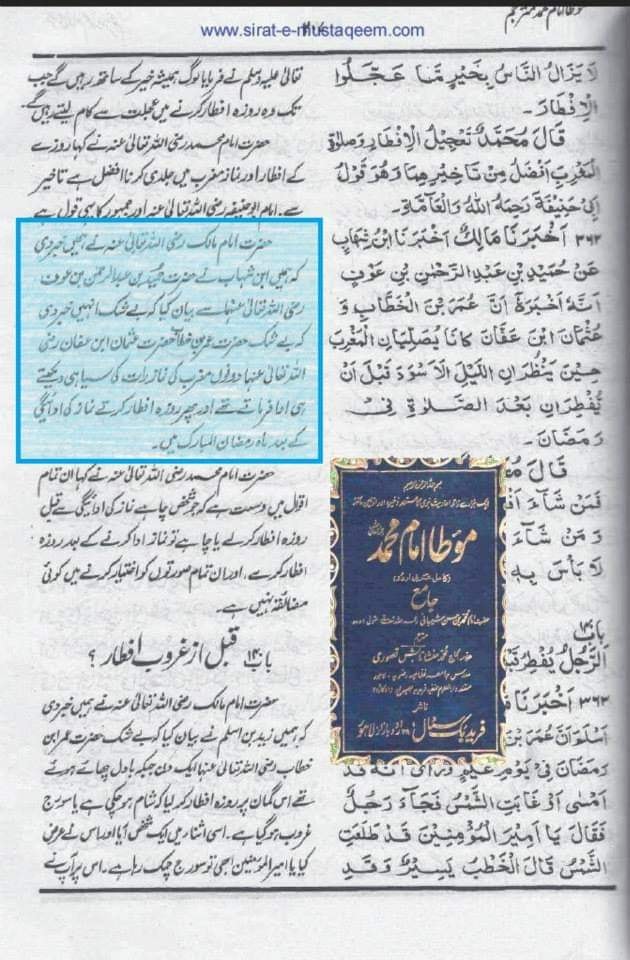 www.sirat-e-mustaqeem.com
موطا امام محمد مترجم
لَا يَزَالُ النَّاسُ بِخَيْرٍ مَّا عَجَّلُوا
الْاِفْطَارَ۔
قَالَ مُحَمَّدٌ تَعْجِيْلُ الْاِفْطَارِ وَصَلٰوةِ
الْمَغْرِبِ اَفْضَلُ مِنْ تَاخِيْرِهِمَا وَهُوَ قَوْلُ
اَبِيْ حَنِيْفَةَ رَحِمَهُ اللهُ وَالْعَامَّةِ۔
۳۶۲ اَخْبَرَنَا مَالِكٌ اَخْبَرَنَا ابْنُ شِهَابٍ
عَنْ حُمَيْدِ بْنِ عَبْدِ الرَّحْمٰنِ بْنِ عَوْفٍ
اَنَّهٗ اَخْبَرَهٗ اَنَّ عُمَرَ بْنَ الْخَطَّابِ وَ
عُثْمَانَ ابْنَ عَفَّانَ كَانَا يُصَلِّيَانِ الْمَغْرِبَ
حِيْنَ يَنْظُرَانِ اللَّيْلَ الْاَسْوَدَ قَبْلَ اَنْ
يُّفْطِرَانِ بَعْدَ الصَّلٰوةِ فِيْ
رَمَضَانَ۔
قَالَ
فَمَنْ شَآءَ
وَمَنْ شَآءَ
لَا بَأْسَ بِهٖ
باب ۱۴۰
الرَّجُلُ يُفْطِرُ
۳۶۳ اَخْبَرَنَا
اَسْلَمَ اَنَّ عُمَرَ بْنَ
رَمَضَانَ فِيْ يَوْمِ غَيْمٍ وَرَاٰى اَنَّهٗ قَدْ
اَمْسٰى اَوْ غَابَتِ الشَّمْسُ فَجَآءَ رَجُلٌ
فَقَالَ يَا اَمِيْرَ الْمُؤْمِنِيْنَ قَدْ طَلَعَتِ
الشَّمْسُ قَالَ الْخَطْبُ يَسِيْرٌ وَقَدِ
تعالیٰ علیہ وسلم نے فرمایا لوگ ہمیشہ خیر کے ساتھ رہیں گے جب
تک وہ روزہ افطار کرنے میں عجلت سے کام لیتے رہیں گے
حضرت امام محمد رضی اللہ تعالیٰ عنہ نے کہا روزے
کے افطار اور نماز مغرب میں جلدی کرنا افضل ہے تاخیر
سے۔ امام ابوحنیفہ رضی اللہ تعالیٰ عنہ اور جمہور کا یہی قول ہے
حضرت امام مالک رضی اللہ تعالیٰ عنہ نے ہمیں خبر دی
کہ ہمیں ابن شہاب نے حضرت حمید بن عبدالرحمٰن بن عوف
رضی اللہ تعالیٰ عنہما سے بیان کیا کہ بے شک انہیں خبر دی
کہ بے شک حضرت عمر بن خطاب حضرت عثمان ابن عفان رضی
اللہ تعالیٰ عنہما دونوں مغرب کی نماز رات کی سیاہی دیکھتے
ہی ادا فرماتے تھے اور پھر روزہ افطار کرتے نماز کی ادائیگی
کے بعد ماہ رمضان المبارک میں۔
حضرت امام محمد رضی اللہ تعالیٰ عنہ نے کہا ان تمام
اقوال میں وسعت ہے کہ جو شخص چاہے نماز کی ادائیگی سے قبل
روزہ افطار کرلے یا چاہے تو نماز ادا کرنے کے بعد روزہ
افطار کرے، اور ان تمام صورتوں کو اختیار کرنے میں کوئی
مضائقہ نہیں ہے۔
باب ۱۴۰ قبل از غروب افطار ؟
حضرت امام مالک رضی اللہ تعالیٰ عنہ نے ہمیں خبر دی
کہ ہمیں زید بن اسلم نے بیان کیا کہ بے شک حضرت عمر ابن
خطاب رضی اللہ تعالیٰ عنہما ایک دن جبکہ بادل چھائے ہوئے
تھے اس گمان پر روزہ افطار کر لیا کہ شام ہو چکی ہے یا سورج
غروب ہوگیا ہے۔ اسی اثناء میں ایک شخص آیا اور اس نے عرض
کیا یا امیر المؤمنین ابھی تو سورج چمک رہا ہے۔ اس پر آپ نے
موطا امام محمد
جامع
مترجم
علامہ محمد منشا تابش قصوری
ناشر
فرید بک سٹال ۳۸ اردو بازار لاہور